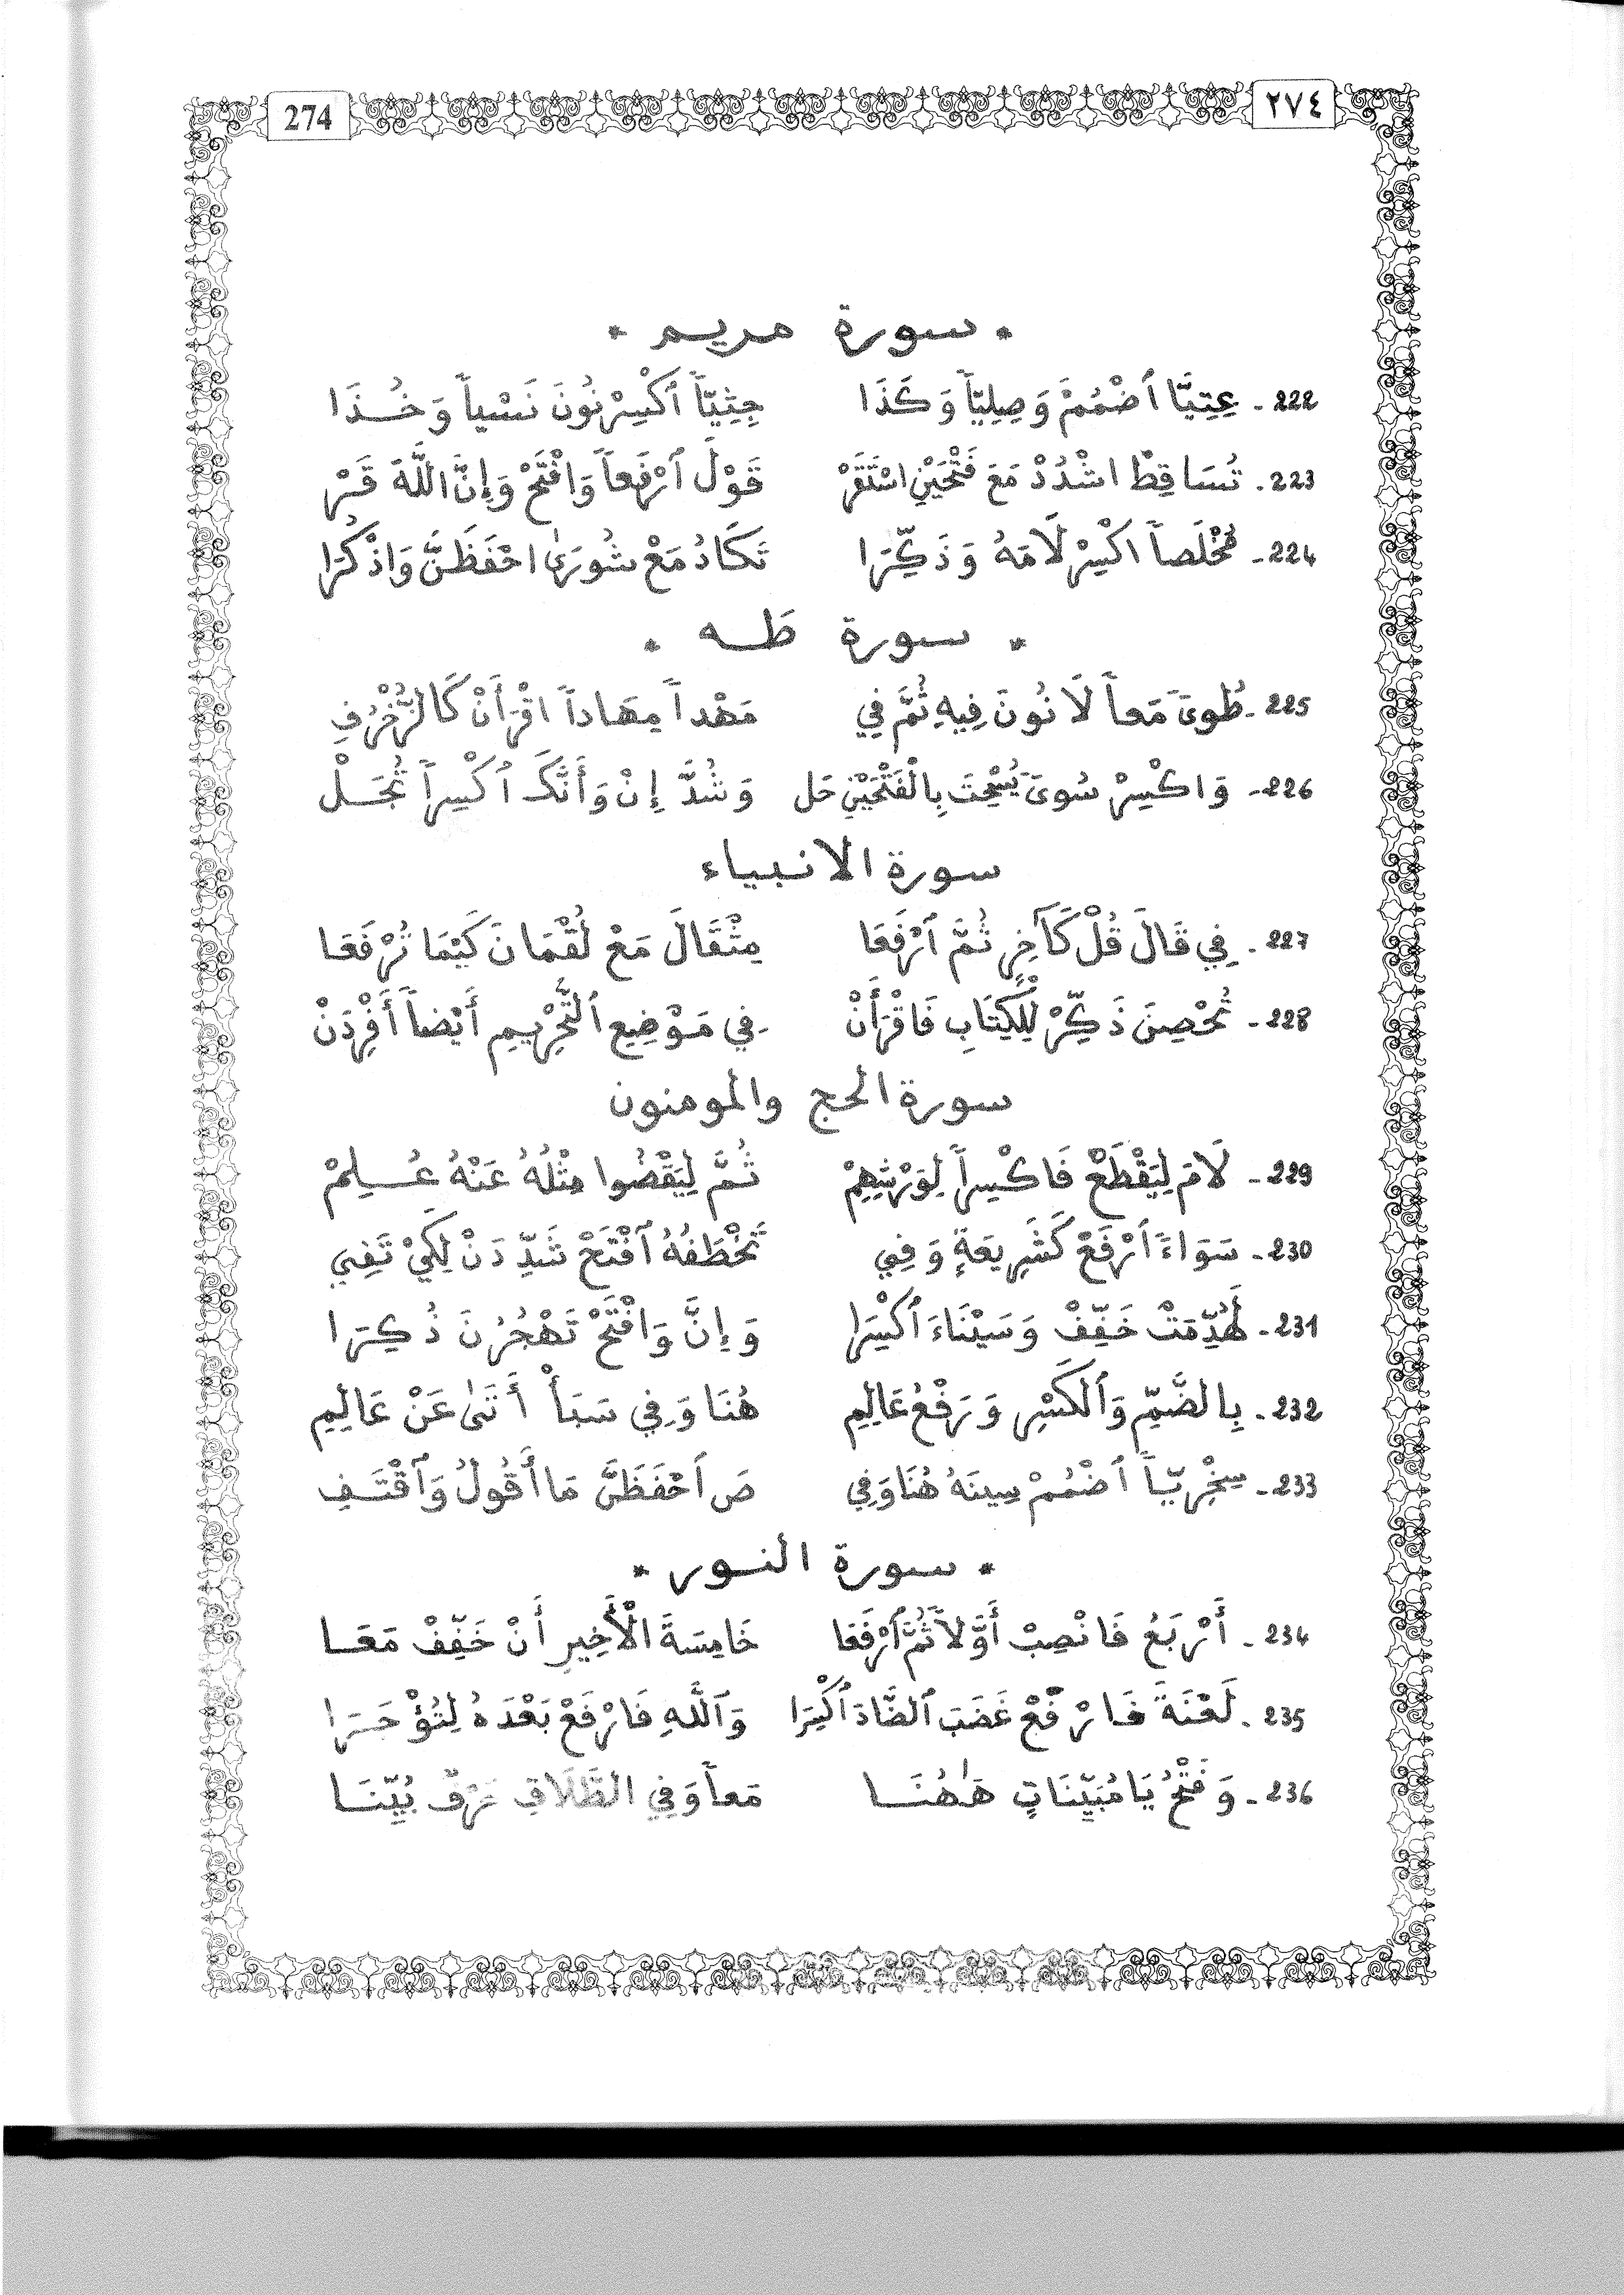 274 ٢٧٤
* سورة مريم *
222- عِتِيّاً ٱضْمُمْ وَصِلِيّاً وَكَذَا جِثِيّاً ٱكْسِرْ نُونَ نَسْياً وَخُذَا
223- تُسَاقِطْ اشْدُدْ مَعَ فَتْحَيْنِ اسْتَقَرْ قَوْلَ ٱرْفَعاً وَافْتَحْ وَإِنَّ اللَّهَ قَرْ
224- مُخْلَصاً اكْسِرْ لَامَهُ وَذَكِّرَا تَكَادُ مَعْ شُورَىٰ احْفَظَنَّ وَاذْكُرَا
* سورة طه *
225- طُوىً مَعاً لَا نُونَ فِيهِ ثُمَّ فِي مَهْداً مِهَاداً اقْرَأَنْ كَالزُّخْرُفِ
226- وَاكْسِرْ سُوىً يُسْحِتَ بِالْفَتْحَيْنِ حَل وَشُدَّ إِنْ وَأَنَّكَ ٱكْسِراً تُجَلْ
سورة الانبياء
227- فِي قَالَ قُلْ كَآخِرٍ ثُمَّ ٱرْفَعَا مِثْقَالَ مَعْ لُقْمَانَ كَيْمَا تُرْفَعَا
228- تُحْصِنَ ذَكِّرْ لِلْكِتَابِ فَاقْرَأَنْ فِي مَوْضِعِ ٱلتَّحْرِيمِ أَيْضاً أَفْرِدَنْ
سورة الحج والمومنون
229- لَامَ لِيَقْطَعْ فَاكْسِراً لِوَرْشِهِمْ ثُمَّ لِيَقْضُوا مِثْلُهُ عَنْهُ عُلِمْ
230- سَوَاءً ٱرْفَعْ كَشَرِيعَةٍ وَفِي تَخْطَفُهُ ٱفْتَحْ شَدِّدَنْ لِكَيْ تَفِي
231- لَهُدِّمَتْ خَفِّفْ وَسَيْنَاءَ ٱكْسِرَا وَإِنَّ وَافْتَحْ تَهْجُرُنَ ذُكِرَا
232- بِالضَّمِّ وَٱلْكَسْرِ وَرَفْعُ عَالِمِ هُنَا وَفِي سَبَأْ أَتَىٰ عَنْ عَالِمِ
233- سِخْرِيّاً ٱضْمُمْ سِينَهُ هُنَا وَفِي صَ ٱحْفَظَنَّ مَا أَقُولُ وَٱقْتَفِ
* سورة النور *
234- أَرْبَعُ فَانْصِبْ أَوَّلاً ثُمَّ ٱرْفَعَا خَامِسَةَ الْأَخِيرِ أَنْ خَفِّفْ مَعَا
235- لَعْنَةَ فَارْفَعْ غَضَبَ ٱلضَّادَ ٱكْسِرَا وَٱللَّهِ فَارْفَعْ بَعْدَهُ لِتُؤْجَرَا
236- وَفَتْحُ يَا مُبَيِّنَاتٍ هَٰهُنَا مَعاً وَفِي الطَّلَاقِ حَرْفٌ بُيِّنَا